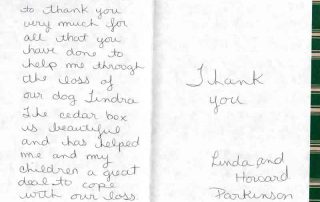 to thank you
very much for
all that you
have done to
help me through
the loss of
our dog Tindra
The cedar box
is beautiful
and has helped
me and my
children a great
deal to cope
with our loss.
Thank
you
Linda and
Howard
Parkinson